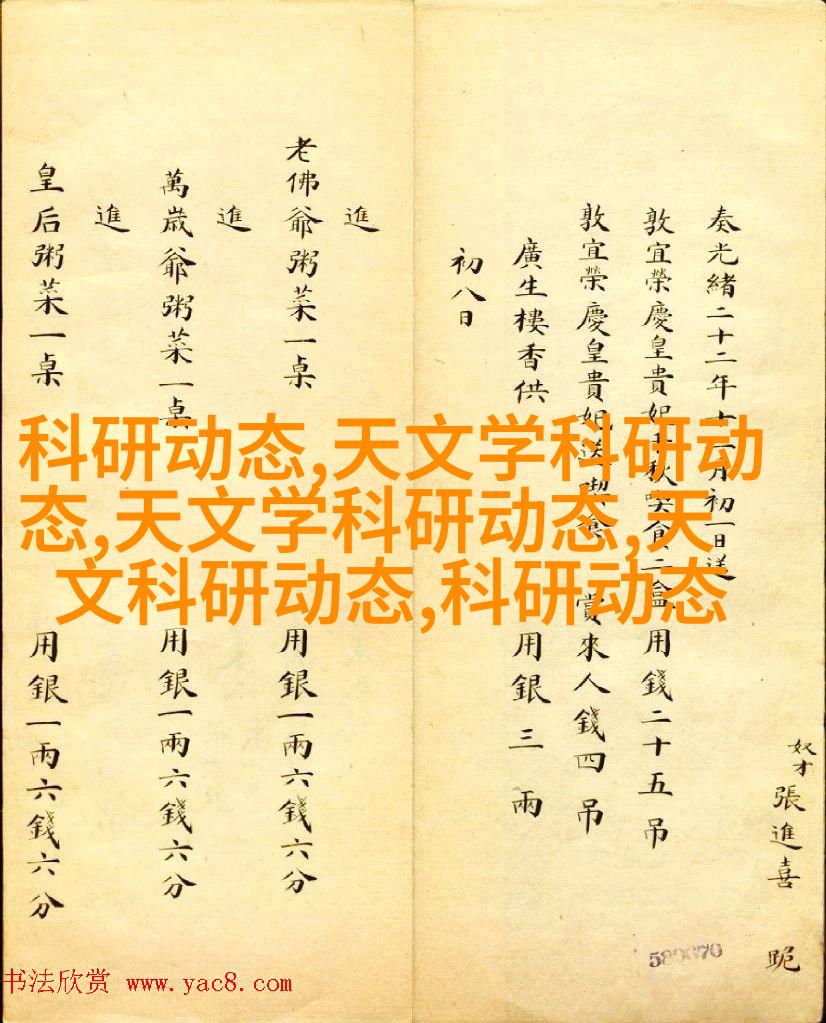 奴才張進喜 跪
奏光緒二十二年十一月初一日送
敦宜榮慶皇貴妃千秋喫食二盒 用錢二十五吊
敦宜榮慶皇貴妃送喫食 賞來人錢四吊
廣生樓香供 用銀三兩
初八日
進
老佛爺粥菜一桌 用銀一兩六錢六分
進
萬歲爺粥菜一桌 用銀一兩六錢六分
進
皇后粥菜一桌 用銀一兩六錢六分
科研动态,天文学科研动
态,天文学科研动态,天
文科研动态,科研动态
书法欣赏 www.yac8.com